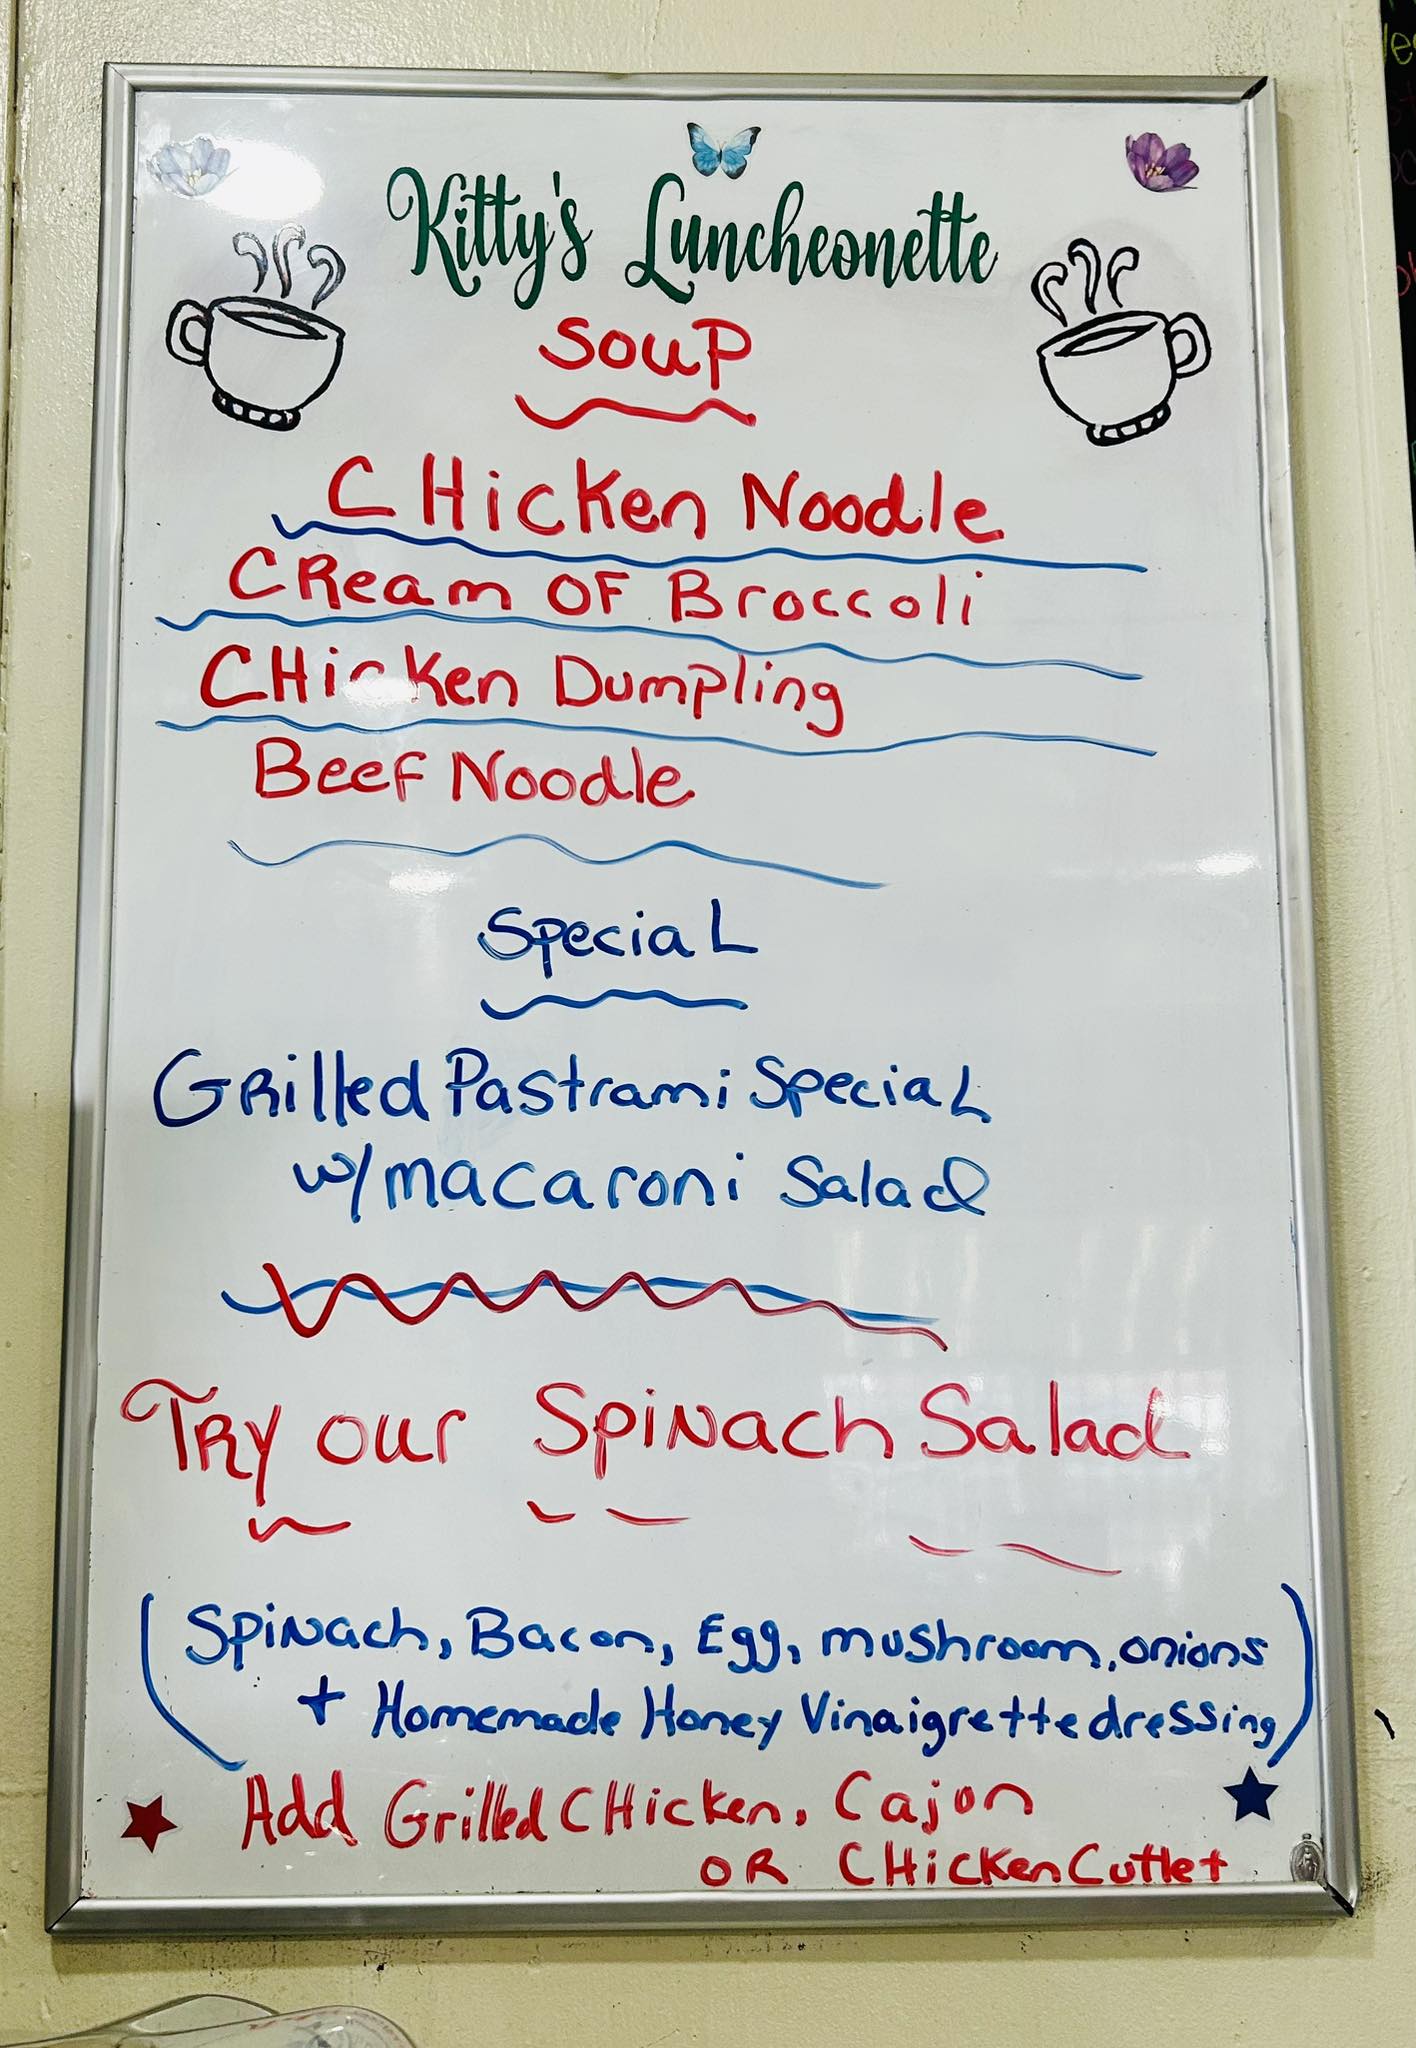 Kitty's Luncheonette
Soup
CHicken Noodle
CReam OF Broccoli
CHicken Dumpling
Beef Noodle
SpeciaL
GRilled Pastrami SpeciaL
w/macaroni Salad
TRy our SpiNach Salad
(SpiNach, Bacon, Egg, mushroom, onions
+ Homemade Honey Vinaigrette dressing)
Add Grilled CHicken, Cajon
OR CHicken Cutlet